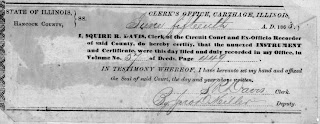 STATE OF ILLINOIS,
HANCOCK COUNTY,
SS.
CLERK'S OFFICE, CARTHAGE, ILLINOIS,
A. D. 186
I, SQUIRE R. DAVIS, Clerk of the Circuit Court and Ex-Officio Recorder
of said County, do hereby certify, that the annexed INSTRUMENT
and Certificate, were this day filed and duly recorded in my Office, in
Volume No. 57 of Deeds, Page
IN TESTIMONY WHEREOF, I have hereunto set my hand and affixed
the Seal of said Court, the day and year above written.
S R Davis Clerk.
Deputy.